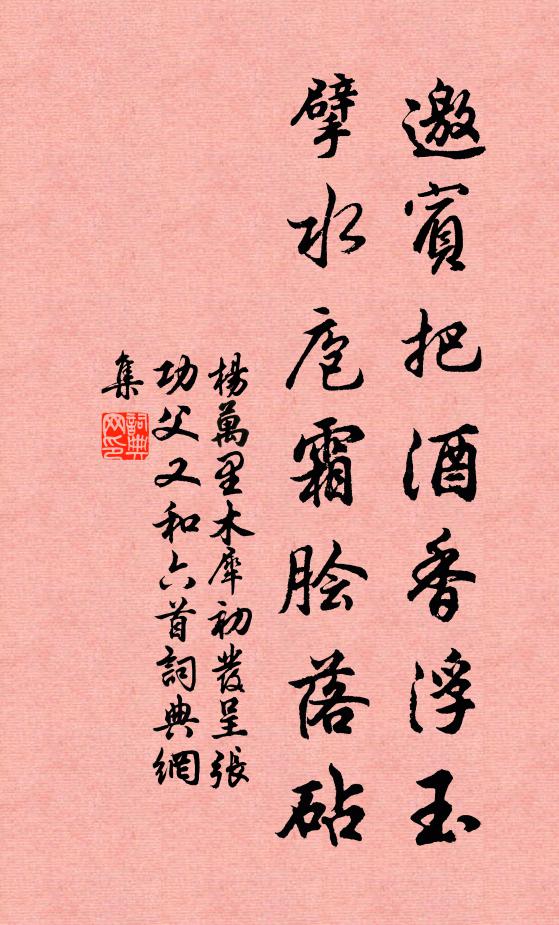 邀賓把酒香浮玉
擘水庖霜脍落砧
楊萬里木犀初發呈張
功父又和六首詞典網
集
詞典
网印